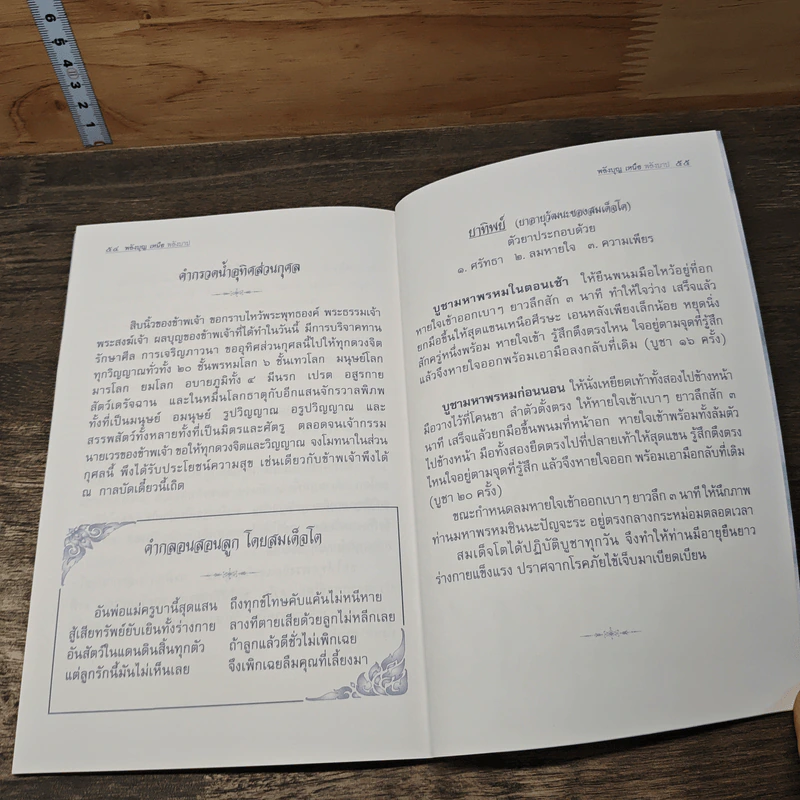 6
5
4
3
2
1
๕๔ พลังบุญ เหนือ พลังบาป
คำกรวดน้ำอุทิศส่วนกุศล
สิบนิ้วของข้าพเจ้า ขอกราบไหว้พระพุทธองค์ พระธรรมเจ้า
พระสงฆ์เจ้า ผลบุญของข้าพเจ้าที่ได้ทำในวันนี้ มีการบริจาคทาน
รักษาศีล การเจริญภาวนา ขออุทิศส่วนกุศลนี้ไปให้ทุกดวงจิต
ทุกวิญญาณทั่วทั้ง ๒๐ ชั้นพรหมโลก ๖ ชั้นเทวโลก มนุษย์โลก
มารโลก ยมโลก อบายภูมิทั้ง ๔ มีนรก เปรต อสูรกาย
สัตว์เดรัจฉาน และในหมื่นโลกธาตุกับอีกแสนจักรวาลพิภพ
ทั้งที่เป็นมนุษย์ อมนุษย์ รูปวิญญาณ อรูปวิญญาณ และ
สรรพสัตว์ทั้งหลายทั้งที่เป็นมิตรและศัตรู ตลอดจนเจ้ากรรม
นายเวรของข้าพเจ้า ขอให้ทุกดวงจิตและวิญญาณ จงโมทนาในส่วน
กุศลนี้ พึงได้รับประโยชน์ความสุข เช่นเดียวกับข้าพเจ้าพึงได้
ณ กาลบัดเดี๋ยวนี้เถิด
คำกลอนสอนลูก โดยสมเด็จโต
อันพ่อแม่ครูบานี้สุดแสน ถึงทุกข์โทษคับแค้นไม่หนีหาย
สู้เสียทรัพย์ยับเยินทั้งร่างกาย ลางทีตายเสียด้วยลูกไม่หลีกเลย
อันสัตว์ในแดนดินสิ้นทุกตัว ถ้าลูกแล้วดีชั่วไม่เพิกเฉย
แต่ลูกรักนี้มันไม่เห็นเลย จึงเพิกเฉยลืมคุณที่เลี้ยงมา
พลังบุญ เหนือ พลังบาป ๕๕
ยาทิพย์ (ยาอายุวัฒนะของสมเด็จโต)
ตัวยาประกอบด้วย
๑. ศรัทธา ๒. ลมหายใจ ๓. ความเพียร
บูชามหาพรหมในตอนเช้า ให้ยืนพนมมือไหว้อยู่ที่อก
หายใจเข้าออกเบาๆ ยาวลึกสัก ๓ นาที ทำให้ใจว่าง เสร็จแล้ว
ยกมือขึ้นให้สุดแขนเหนือศีรษะ เอนหลังเพียงเล็กน้อย หยุดนิ่ง
สักครู่หนึ่งพร้อม หายใจเข้า รู้สึกตึงตรงไหน ใจอยู่ตามจุดที่รู้สึก
แล้วจึงหายใจออกพร้อมเอามือลงกลับที่เดิม (บูชา ๑๖ ครั้ง)
บูชามหาพรหมก่อนนอน ให้นั่งเหยียดเท้าทั้งสองไปข้างหน้า
มือวางไว้ที่โคนขา ลำตัวตั้งตรง ให้หายใจเข้าเบาๆ ยาวลึกสัก ๓
นาที เสร็จแล้วยกมือขึ้นพนมที่หน้าอก หายใจเข้าพร้อมทั้งล้มตัว
ไปข้างหน้า มือทั้งสองยืดตรงไปที่ปลายเท้าให้สุดแขน รู้สึกตึงตรง
ไหนใจอยู่ตามจุดที่รู้สึก แล้วจึงหายใจออก พร้อมเอามือกลับที่เดิม
(บูชา ๒๐ ครั้ง)
ขณะกำหนดลมหายใจเข้าออกเบาๆ ยาวลึก ๓ นาทีให้นึกภาพ
ท่านมหาพรหมชินนะปัญจะระ อยู่ตรงกลางกระหม่อมตลอดเวลา
สมเด็จโตได้ปฏิบัติบูชาทุกวัน จึงทำให้ท่านมีอายุยืนยาว
ร่างกายแข็งแรง ปราศจากโรคภัยไข้เจ็บมาเบียดเบียน